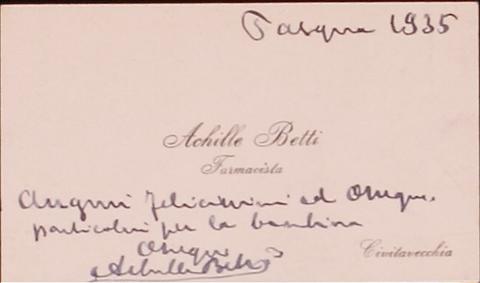 Pasqua 1935
Achille Betti
Farmacista
Auguri felicissimi ed Ossequi.
particolari per la bambina
Ossequi
Achille Betti
Civitavecchia